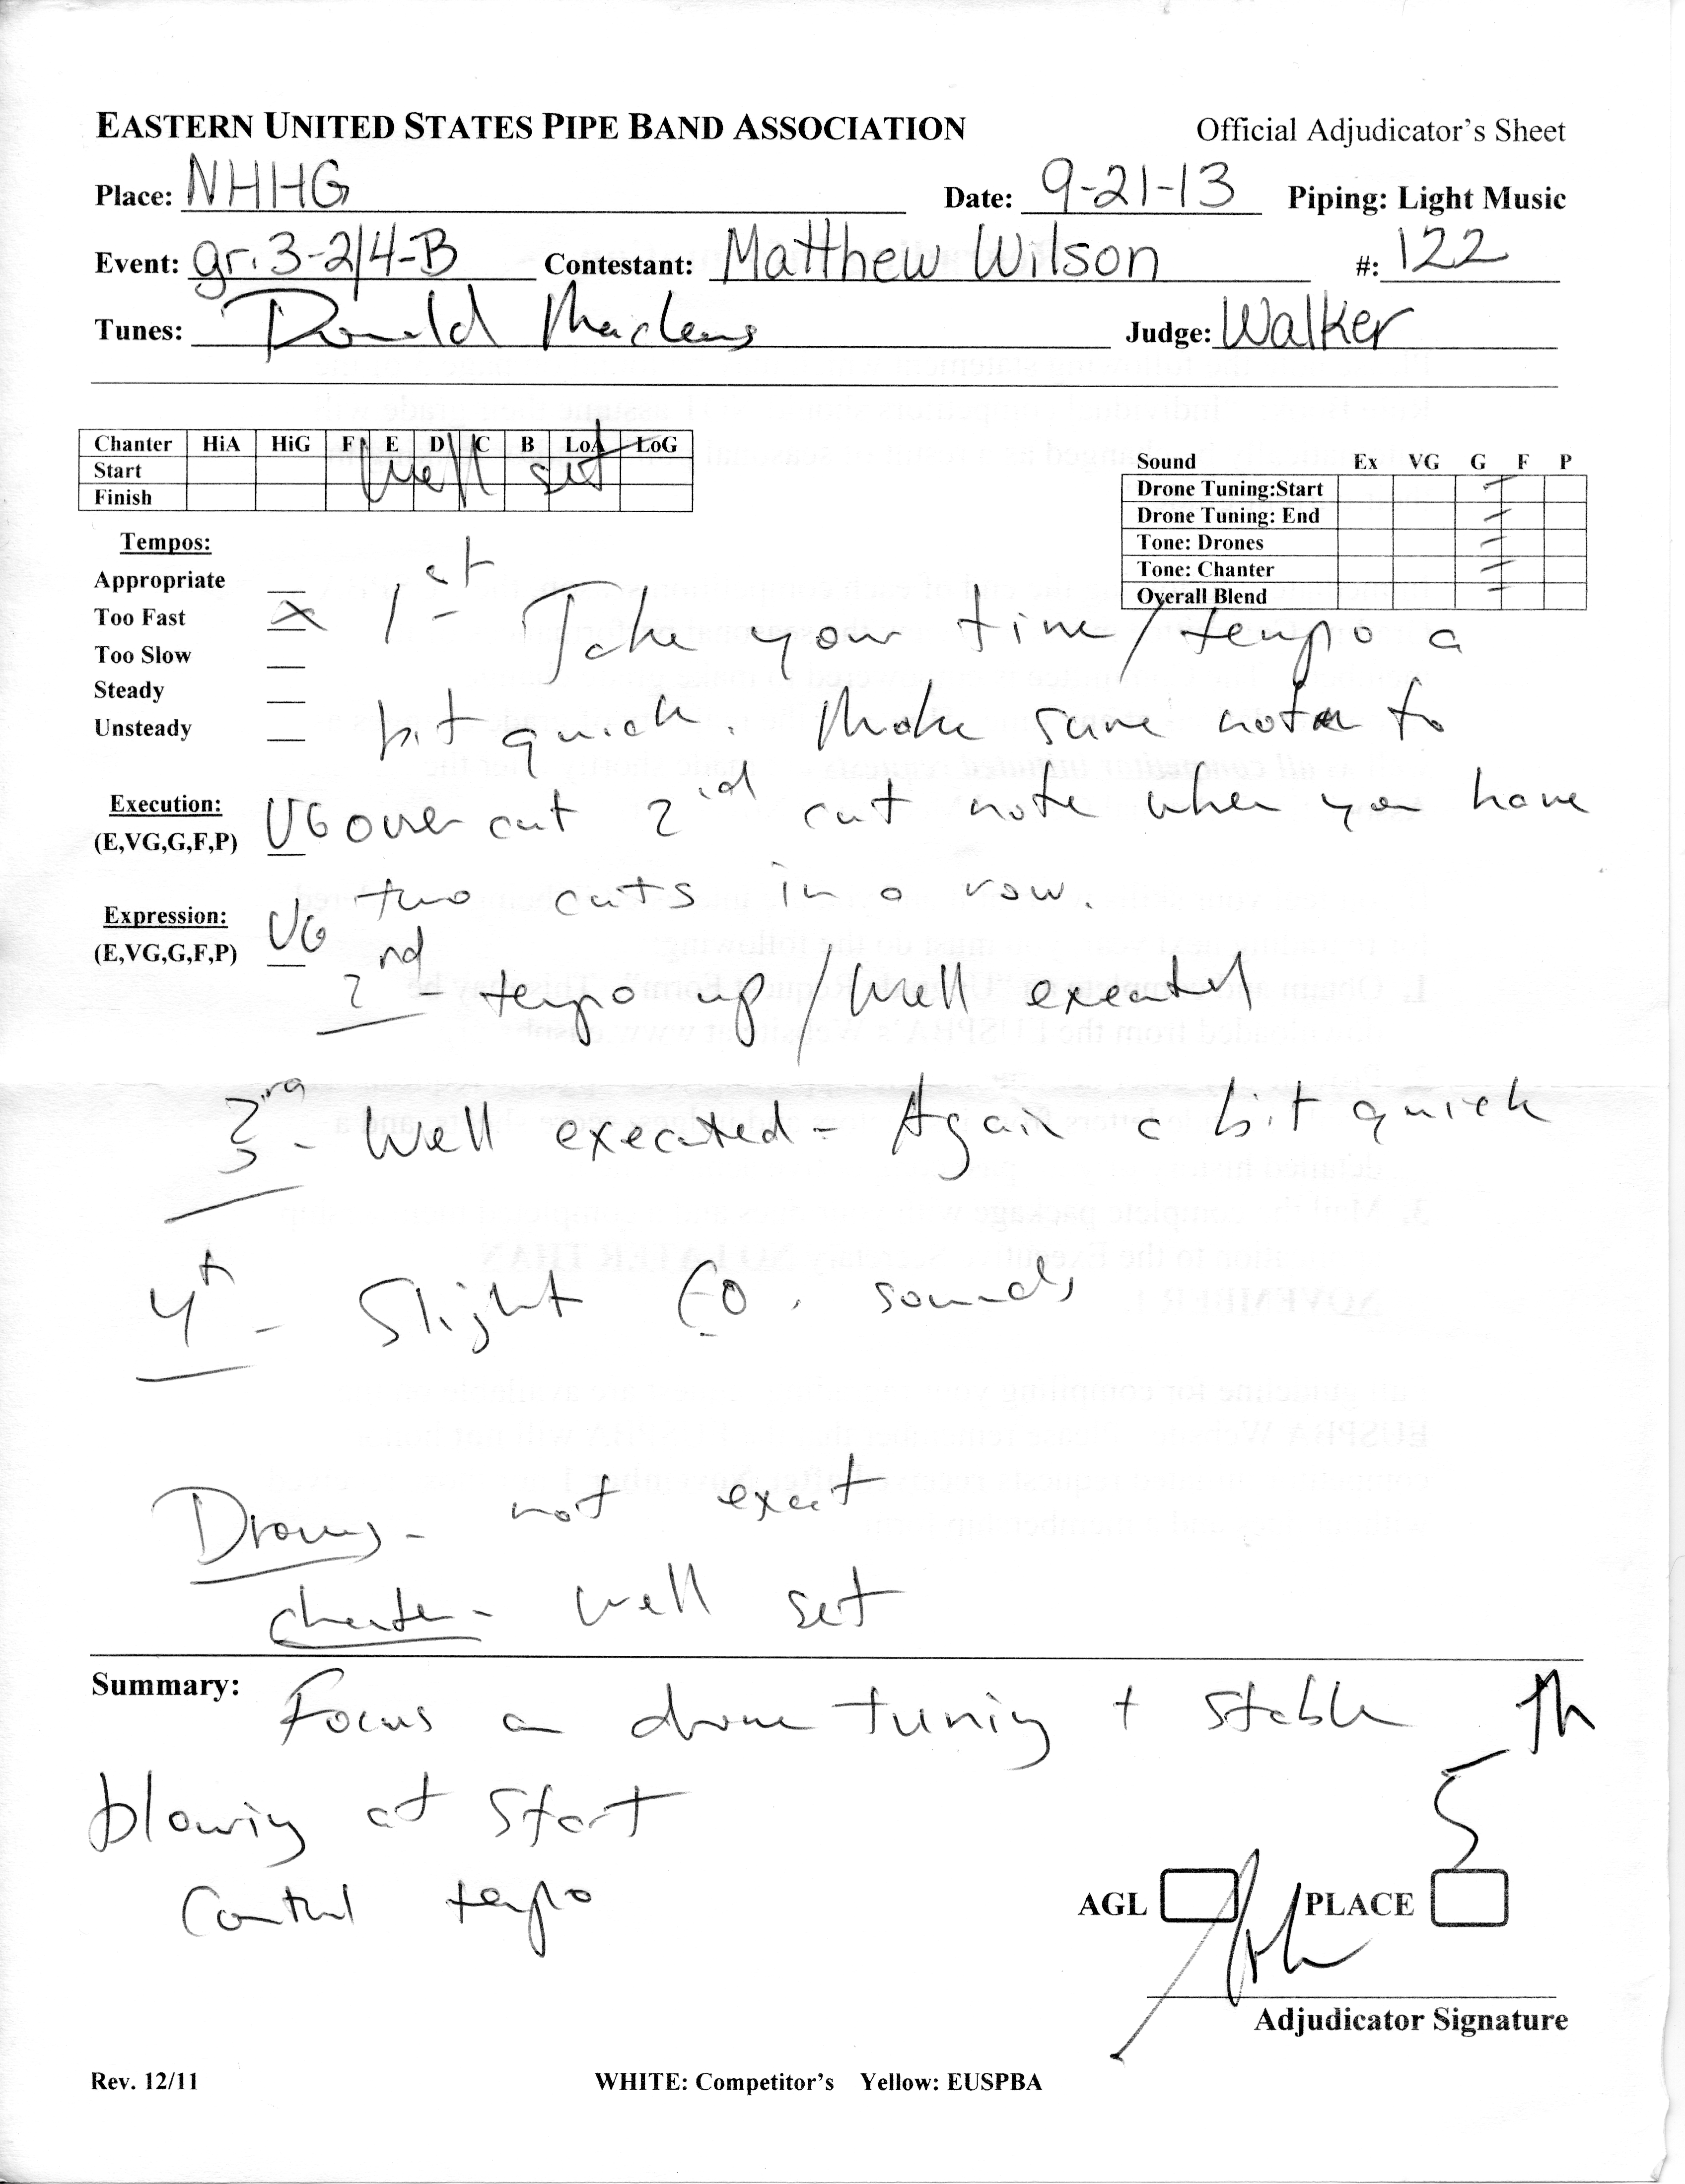 EASTERN UNITED STATES PIPE BAND ASSOCIATION Official Adjudicator's Sheet
Place: NHHG Date: 9-21-13 Piping: Light Music
Event: gr. 3-2/4-B Contestant: Matthew Wilson #: 122
Tunes: Donald Macleans Judge: Walker
Chanter HiA HiG F E D C B LoA LoG
Start
Finish
well set
Sound Ex VG G F P
Drone Tuning:Start
Drone Tuning: End
Tone: Drones
Tone: Chanter
Overall Blend
Tempos:
Appropriate
Too Fast X
Too Slow
Steady
Unsteady
Execution:
(E,VG,G,F,P) VG
Expression:
(E,VG,G,F,P) VG
1st - Take your time / tempo a
bit quick. Make sure not to
over cut 2nd cut note when you have
two cuts in a row.
2nd - tempo up / Well executed
3rd - Well executed - Again a bit quick
4th - Slight sounds
Drones - not exact
chanter - well set
Summary: Focus on drone tuning + stable
blowing at start
Control tempo
5th
AGL PLACE
Adjudicator Signature
Rev. 12/11 WHITE: Competitor's Yellow: EUSPBA